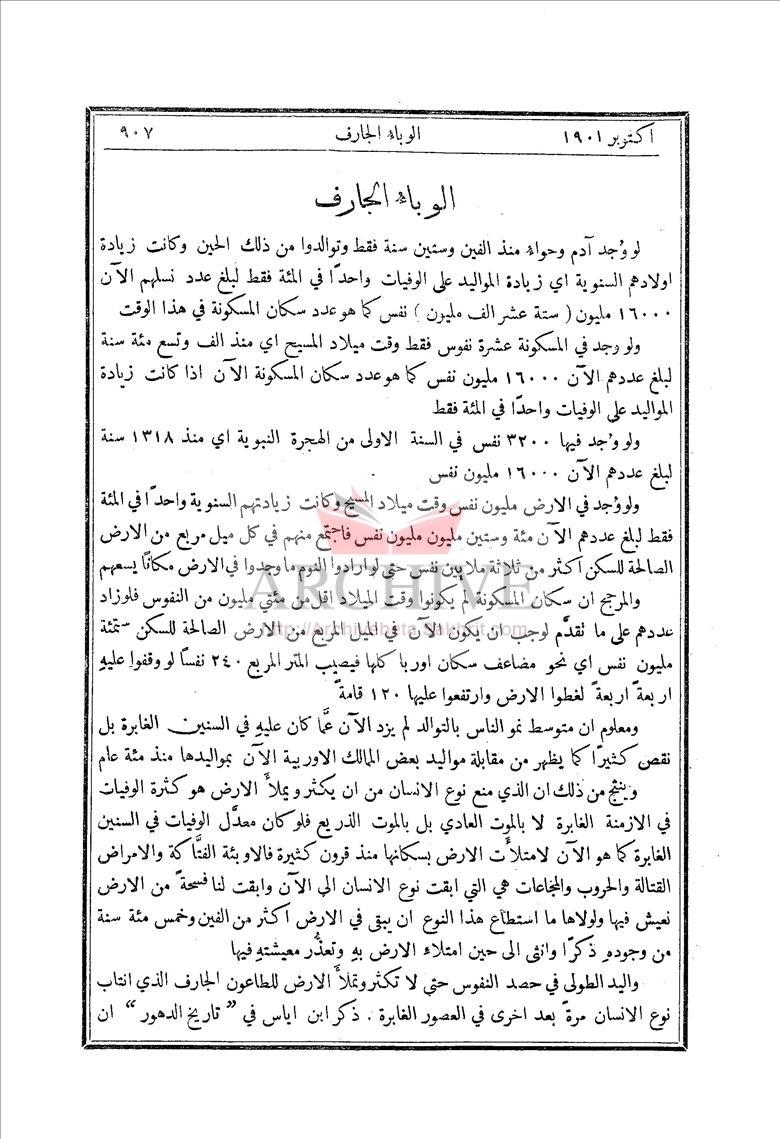 اكتوبر ١٩٠١ الوباء الجارف ٩٠٧
الوباء الجارف
لو وُجد آدم وحواء منذ الفين وستين سنة فقط وتوالدوا من ذلك الحين وكانت زيادة
اولادهم السنوية اي زيادة المواليد على الوفيات واحدًا في المئة فقط لبلغ عدد نسلهم الآن
١٦٠٠٠ مليون ( ستة عشر الف مليون ) نفس كما هو عدد سكان المسكونة في هذا الوقت
ولو وجد في المسكونة عشرة نفوس فقط وقت ميلاد المسيح اي منذ الف وتسع مئة سنة
لبلغ عددهم الآن ١٦٠٠٠ مليون نفس كما هو عدد سكان المسكونة الآن اذا كانت زيادة
المواليد على الوفيات واحدًا في المئة فقط
ولو وُجد فيها ٣٢٠٠ نفس في السنة الاولى من الهجرة النبوية اي منذ ١٣١٨ سنة
لبلغ عددهم الآن ١٦٠٠٠ مليون نفس
ولو وُجد في الارض مليون نفس وقت ميلاد المسيح وكانت زيادتهم السنوية واحدًا في المئة
فقط لبلغ عددهم الآن مئة وستين مليون مليون نفس فاجتمع منهم في كل ميل مربع من الارض
الصالحة للسكن اكثر من ثلاثة ملايين نفس حتى لو ارادوا النوم ما وجدوا في الارض مكانًا يسعهم
ARCHIVE
والمرجح ان سكان المسكونة لم يكونوا وقت الميلاد اقل من مئتي مليون من النفوس فلو زاد
http://Archivebeta.Sakhrit.com
عددهم على ما تقدَّم لوجب ان يكون الآن في الميل المربع من الارض الصالحة للسكن ستمئة
مليون نفس اي نحو مضاعف سكان اوربا كلها فيصيب المتر المربع ٢٤٠ نفسًا لو وقفوا عليهِ
اربعةً اربعةً لغطوا الارض وارتفعوا عليها ١٢٠ قامةً
ومعلوم ان متوسط نمو الناس بالتوالد لم يزد الآن عمَّا كان عليهِ في السنين الغابرة بل
نقص كثيرًا كما يظهر من مقابلة مواليد بعض الممالك الاوربية الآن بمواليدها منذ مئة عام
وينتج من ذلك ان الذي منع نوع الانسان من ان يكثر ويملأَ الارض هو كثرة الوفيات
في الازمنة الغابرة لا بالموت العادي بل بالموت الذريع فلو كان معدَّل الوفيات في السنين
الغابرة كما هو الآن لامتلأَت الارض بسكانها منذ قرون كثيرة فالاوبئة الفتَّاكة والامراض
القتالة والحروب والمجاعات هي التي ابقت نوع الانسان الى الآن وابقت لنا فسحةً من الارض
نعيش فيها ولولاها ما استطاع هذا النوع ان يبقى في الارض اكثر من الفين وخمس مئة سنة
من وجودهِ ذكرًا وانثى الى حين امتلاء الارض بهِ وتعذُّر معيشتهِ فيها
واليد الطولى في حصد النفوس حتى لا تكثر وتملأَ الارض للطاعون الجارف الذي انتاب
نوع الانسان مرةً بعد اخرى في العصور الغابرة . ذكر ابن اياس في " تاريخ الدهور " ان